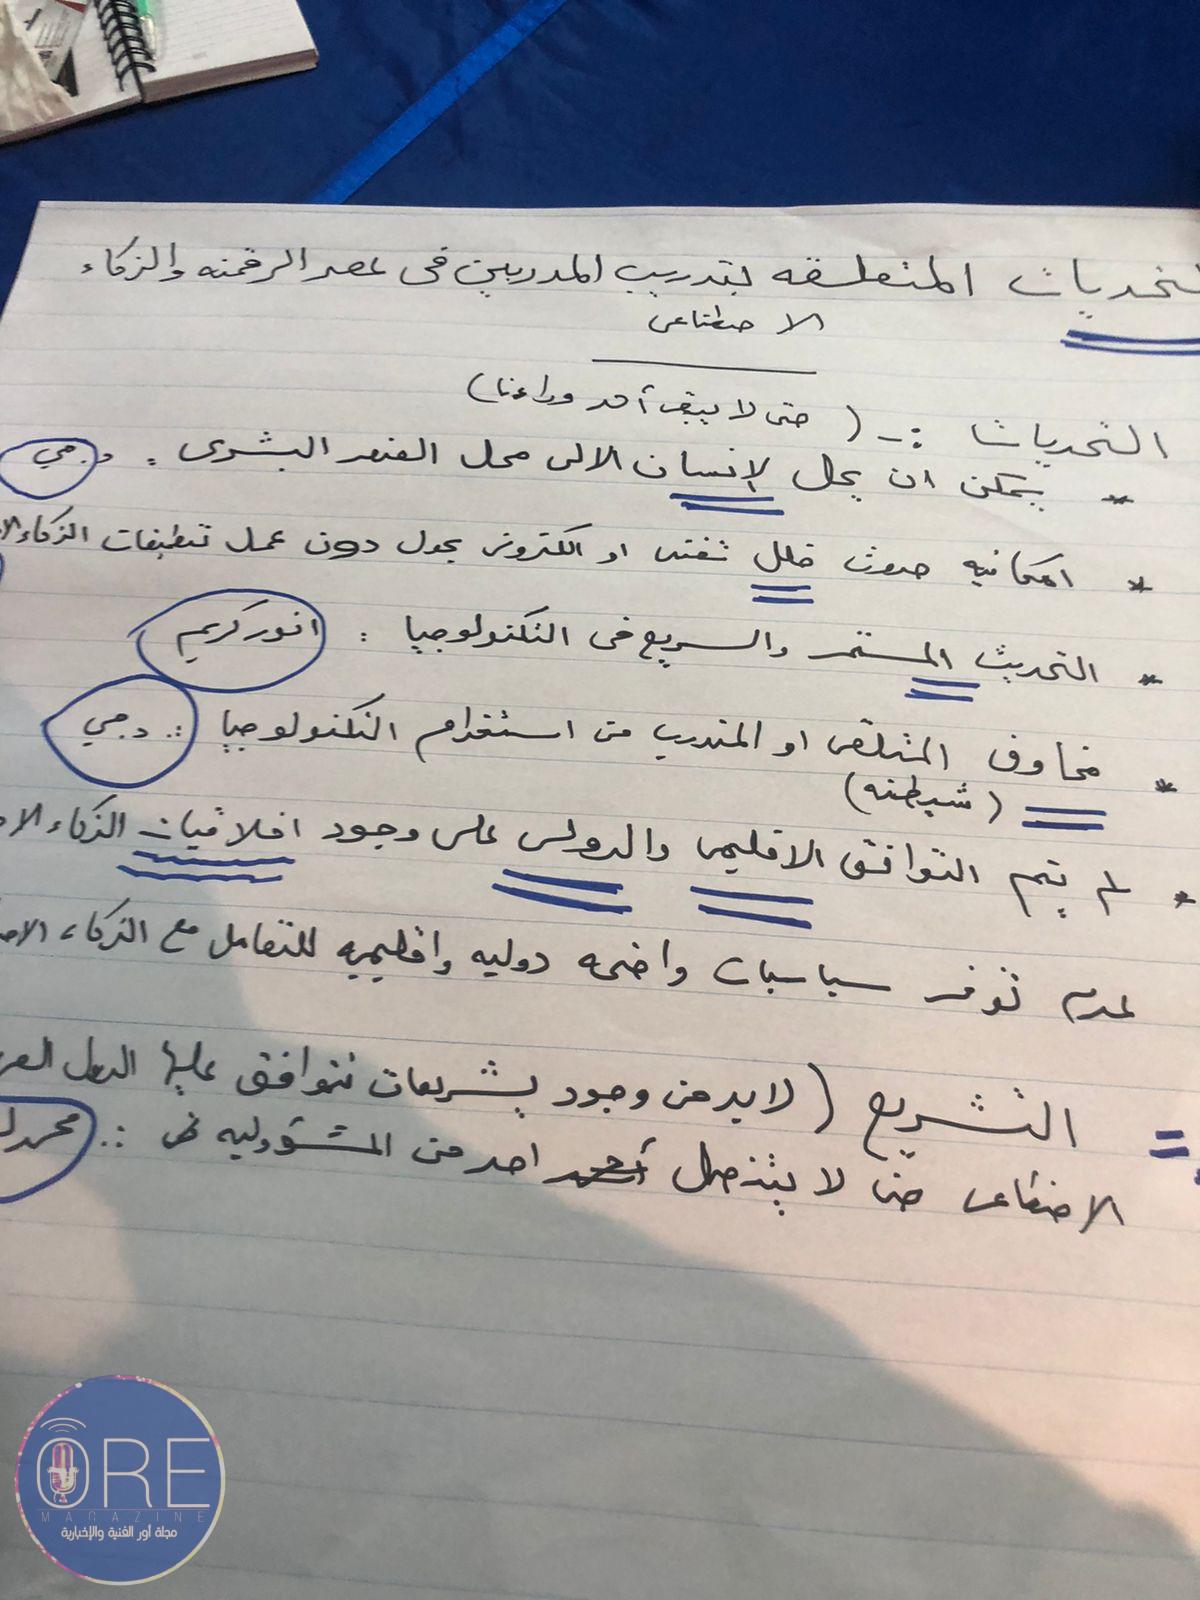 التحديات المتعلقه بتدريب المدربين فى عصر الرقمنه والذكاء
الاصطناعى
التحديات :- ( حتى لا يبقى أحد وراءنا )
* يمكن ان يحل لإنسان الالى محل العنصر البشرى : د. مي
* امكانيه حدوث خلل تقنى او الكترونى يحول دون عمل تطبيقات الذكاء الا
* التحديث المستمر والسريع فى التكنولوجيا : انور كريم
* مخاوف المتلقى او المتدرب من استخدام التكنولوجيا : د. مي
( شيطنه )
* لم يتم التوافق الاقليمى والدولى على وجود اخلاقيات الذكاء الا
عدم توفر سياسات واضحه دوليه واقليميه للتعامل مع الذكاء الا
= التشريع ( لابد من وجود تشريعات تتوافق عليها الدول العر
الاصطناعى حتى لا يتنصل احد من المسؤوليه : محمد
ORE
MAGAZINE
مجلة أور الفنية والإخبارية